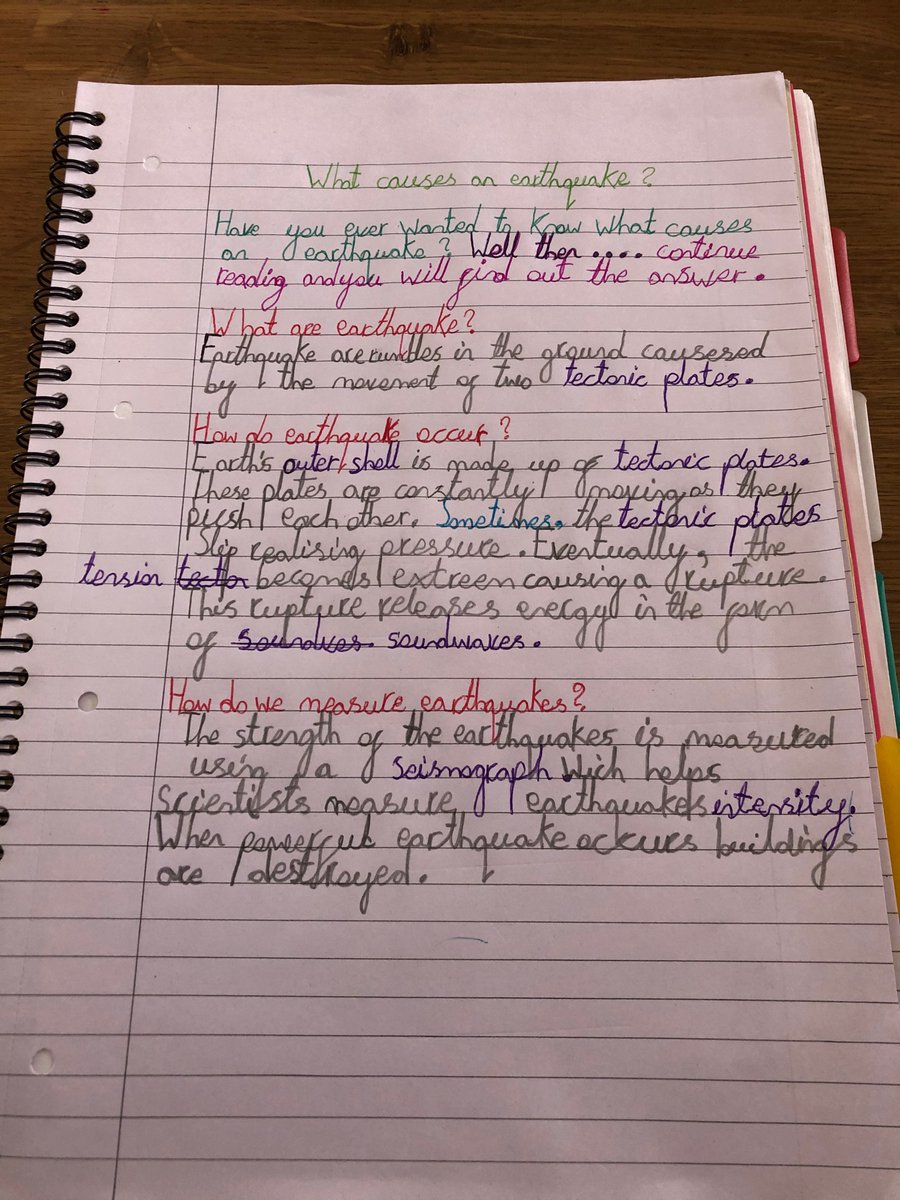 What causes an earthquake?
Have you ever wanted to know what causes
an earthquake? Well then.... continue
reading and you will find out the answer.
What are earthquake?
Earthquake are rumbles in the ground causesed
by the movement of two tectonic plates.
How do earthquake occur?
Earth's outer shell is made up of tectonic plates.
These plates are constantly moving as they
push each other. Sometimes. the tectonic plates
slip realising pressure. Eventually, the
tension tecton becomes extreen causing a rupture.
This rupture releases energy in the form
of soundwes. soundwaves.
How do we measure earthquakes?
The strength of the earthquakes is measured
using a seismograph wich helps
scientists measure earthquakes intensity.
When powerful earthquake ockurs buildings
are destroyed.